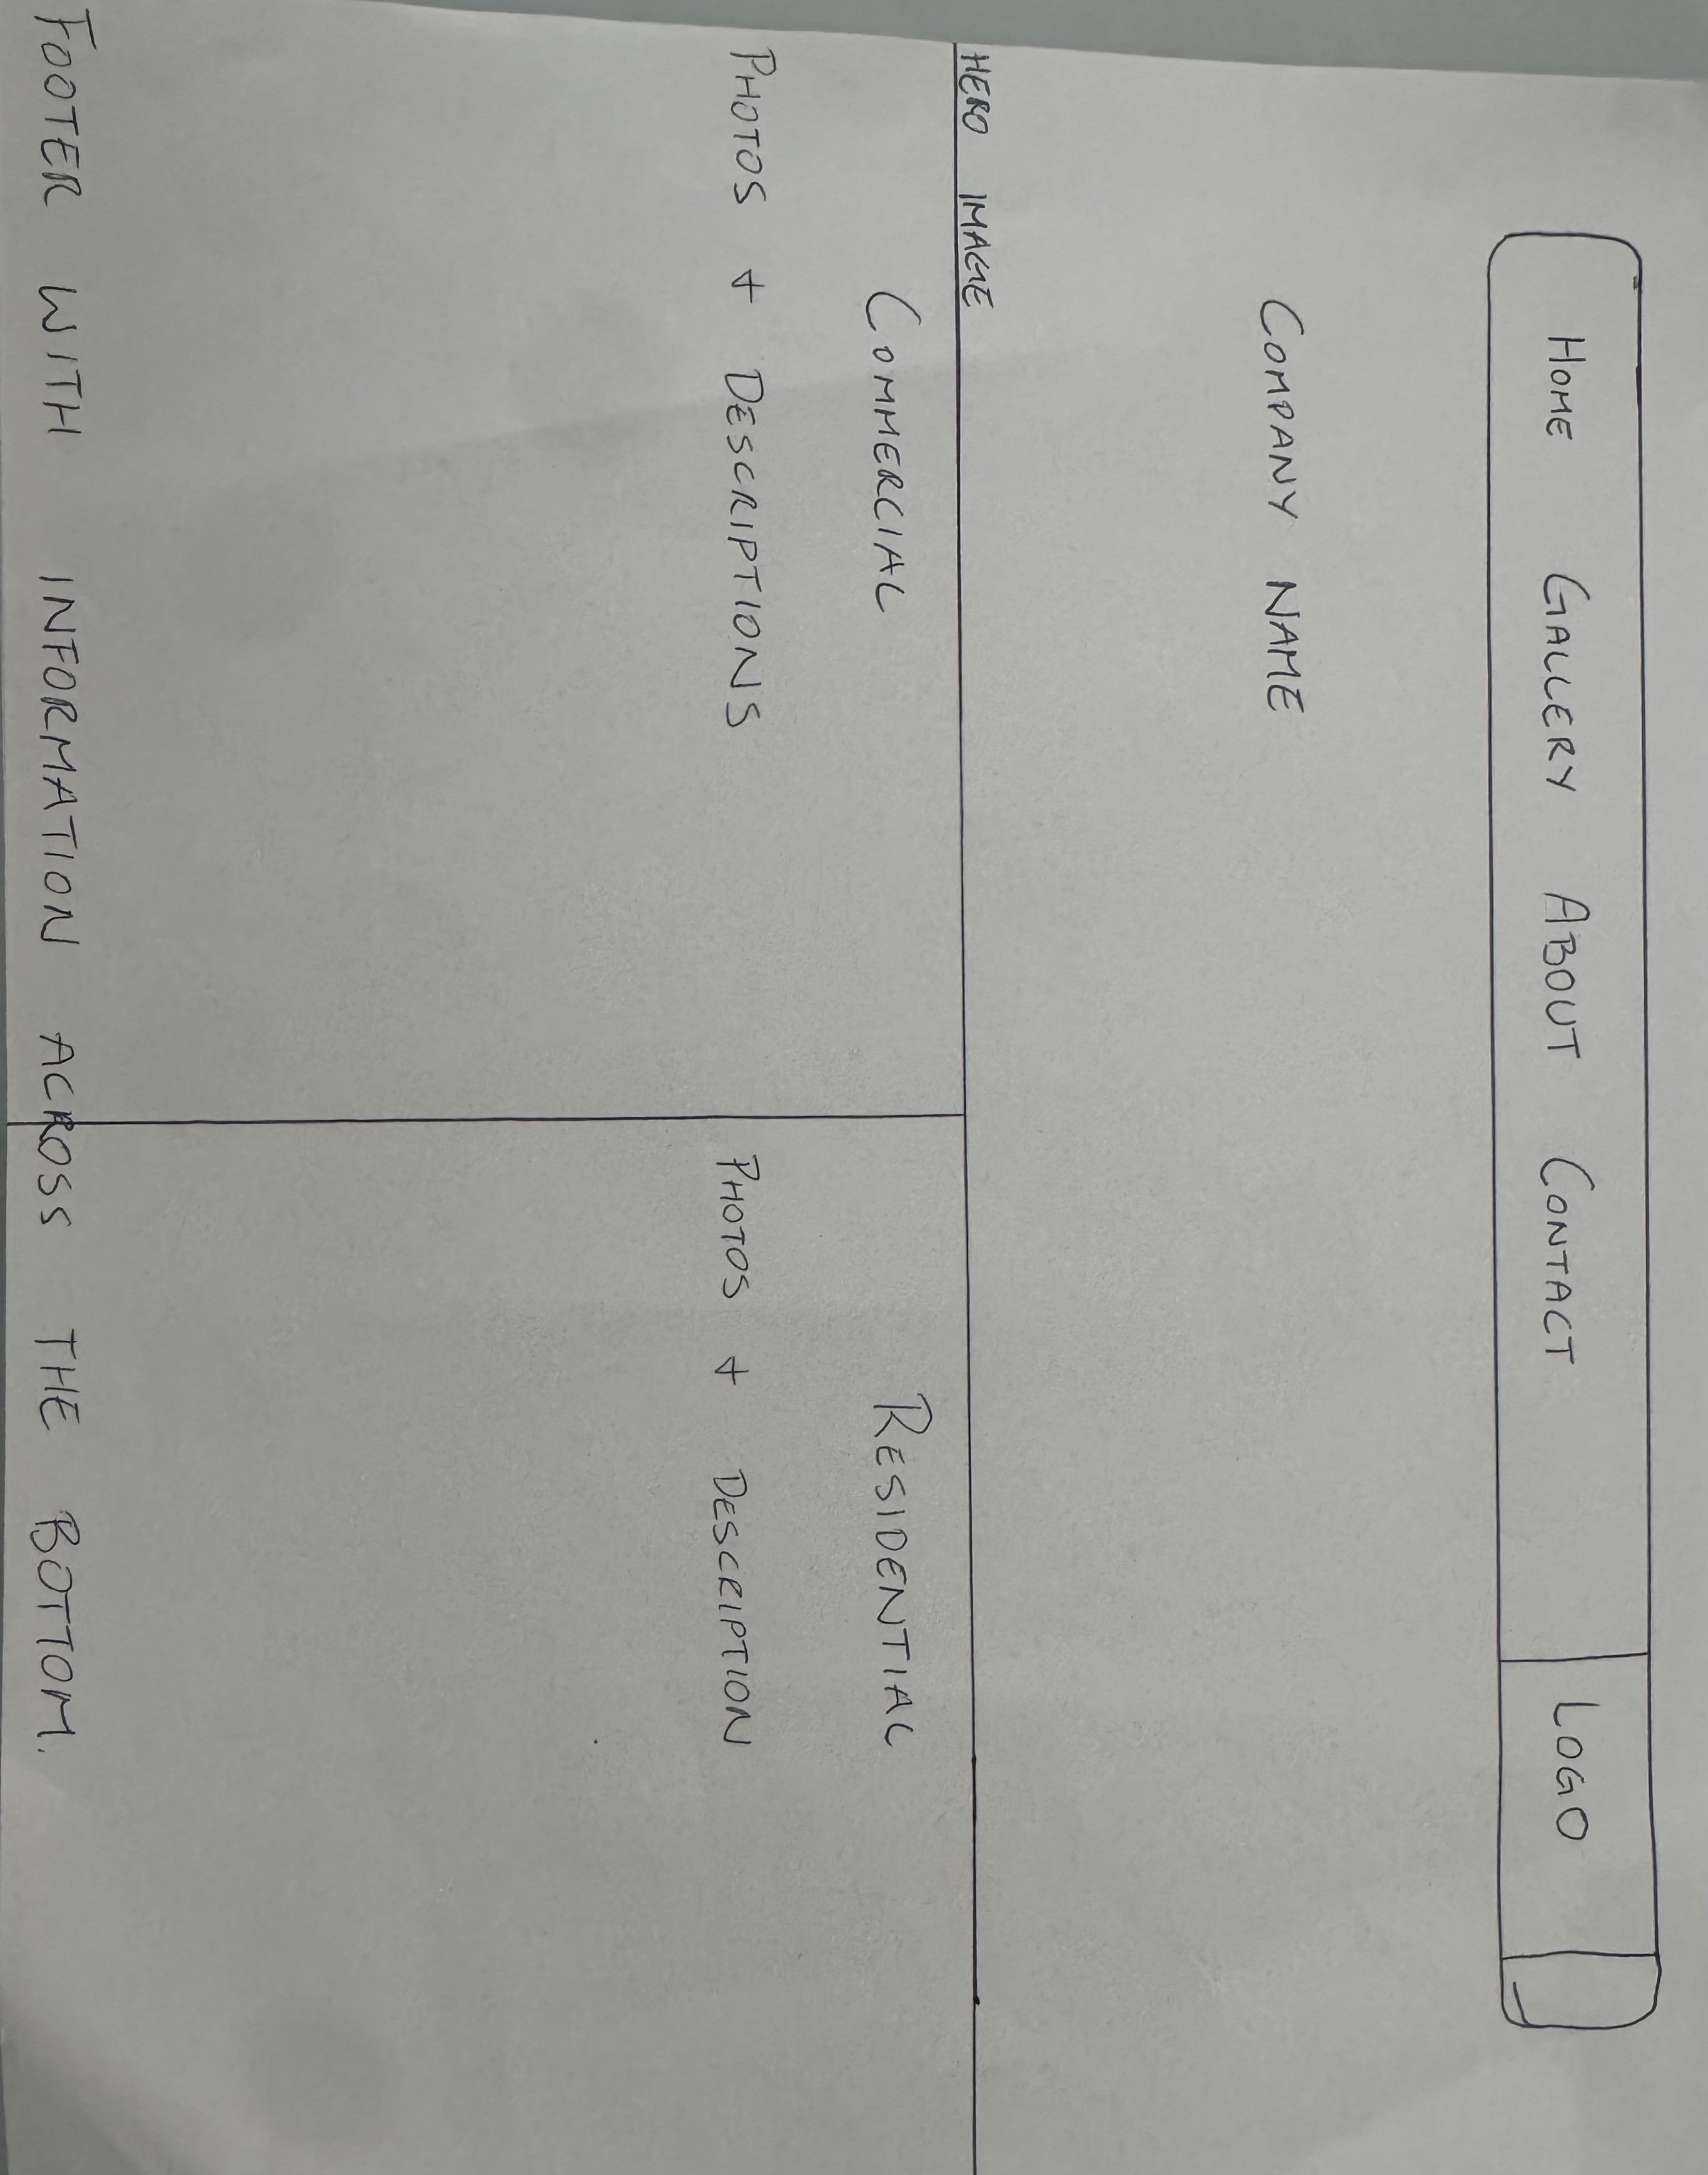 HOME GALLERY ABOUT CONTACT LOGO
COMPANY NAME
HERO IMAGE
COMMERCIAL
PHOTOS + DESCRIPTIONS
RESIDENTIAL
PHOTOS + DESCRIPTION
FOOTER WITH INFORMATION ACROSS THE BOTTOM.